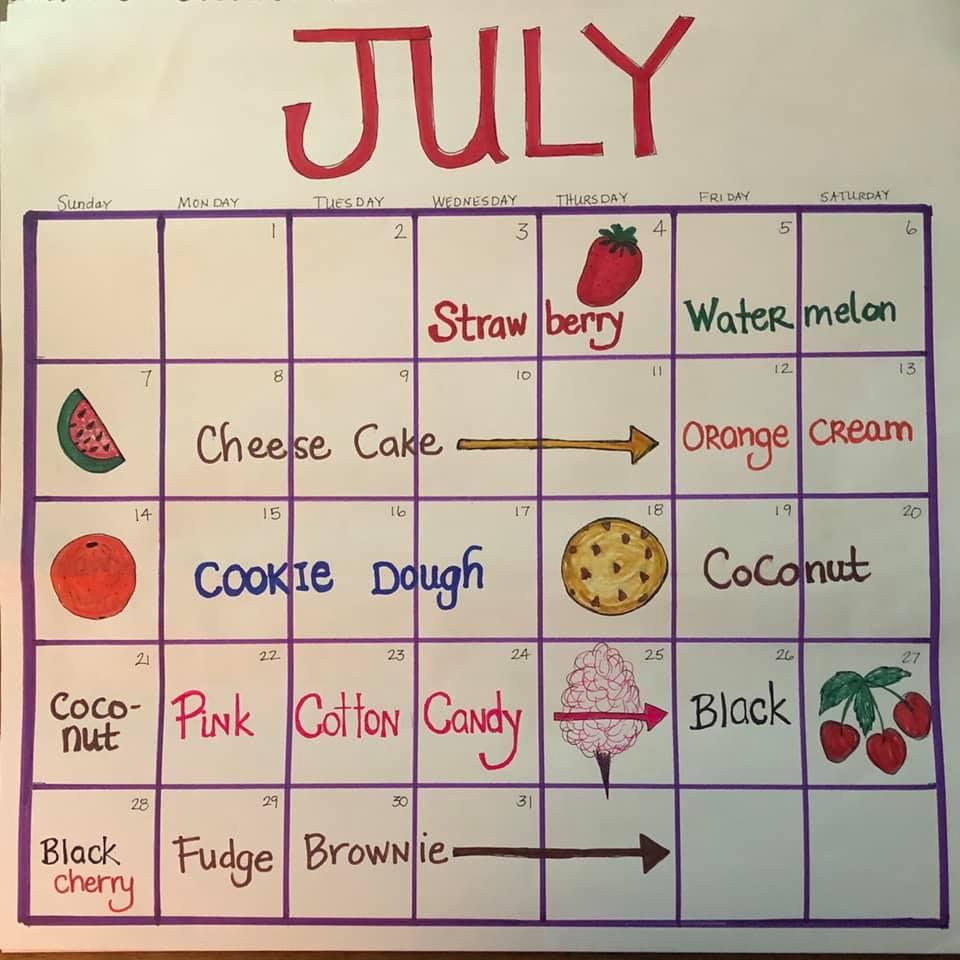 JULY
Sunday MONDAY TUESDAY WEDNESDAY THURSDAY FRIDAY SATURDAY
1 2 3 4 5 6
Strawberry Watermelon
7 8 9 10 11 12 13
Cheese Cake Orange Cream
14 15 16 17 18 19 20
Cookie Dough Coconut
21 22 23 24 25 26 27
Coco-
nut
Pink Cotton Candy Black
28 29 30 31
Black
cherry
Fudge Brownie